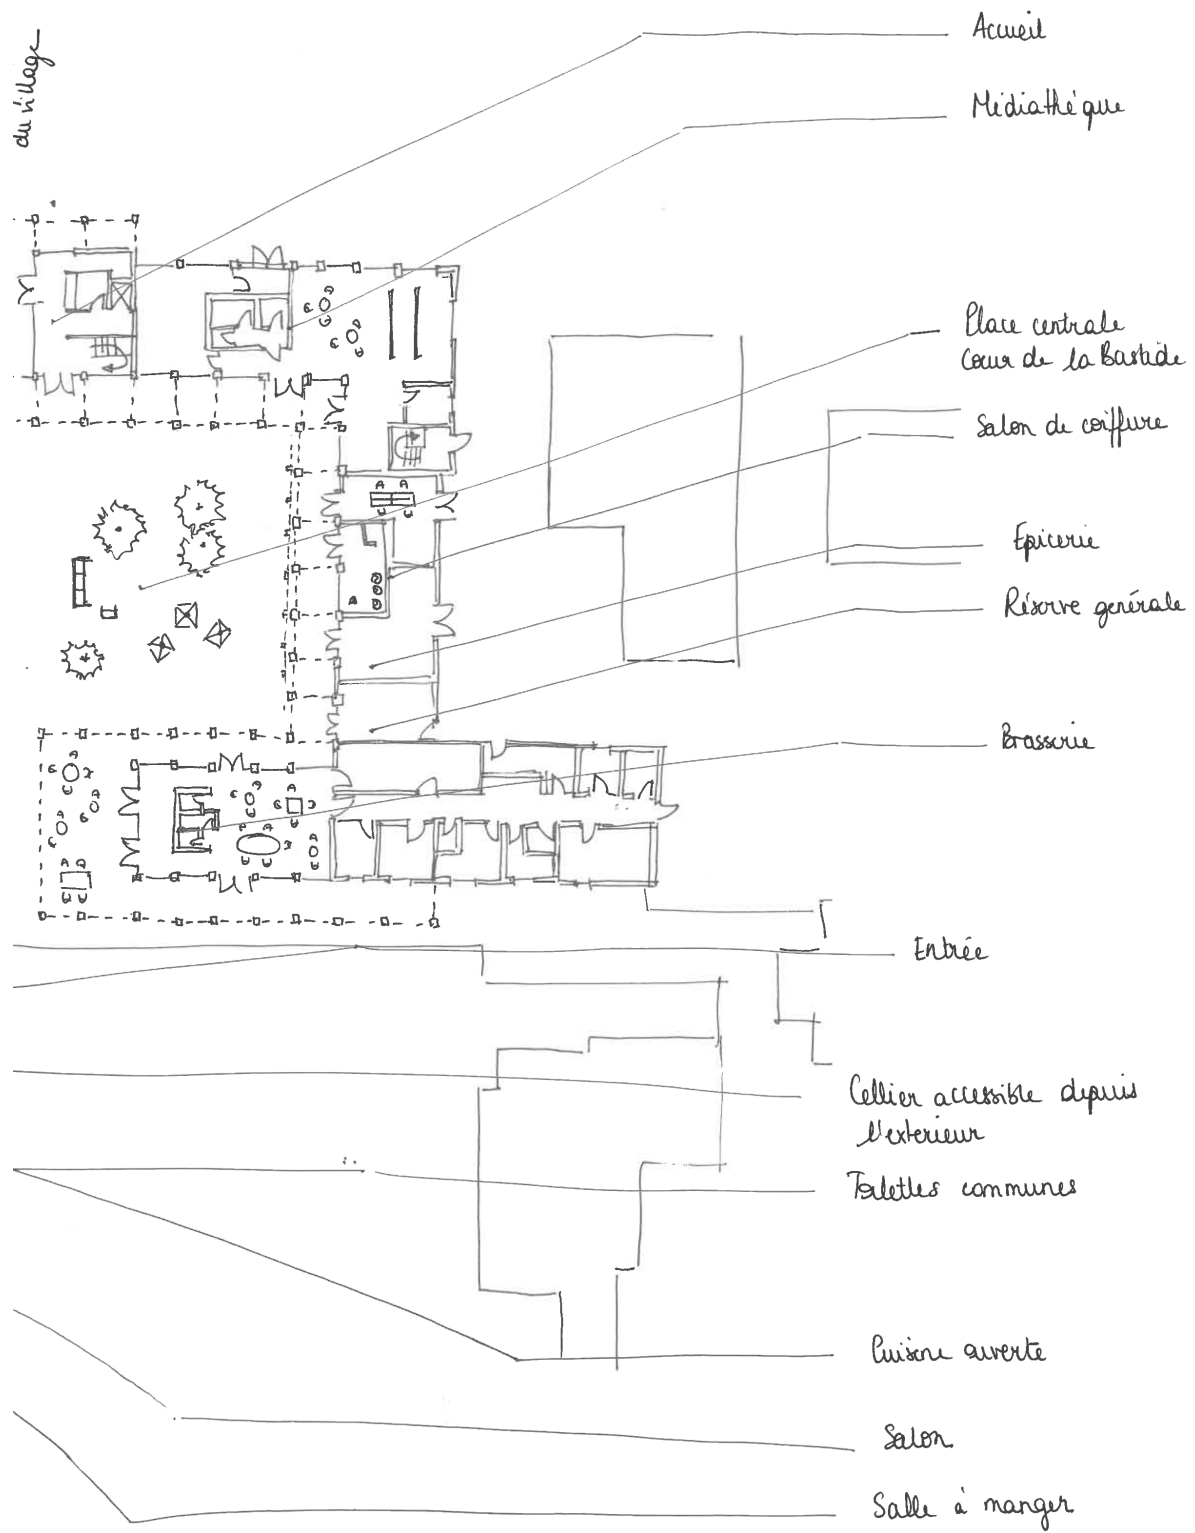 du village
Accueil
Médiathèque
Place centrale
Cœur de la Bastide
Salon de coiffure
Epicerie
Réserve générale
Brasserie
Entrée
Cellier accessible depuis
l'exterieur
Toilettes communes
Cuisine ouverte
Salon
Salle à manger